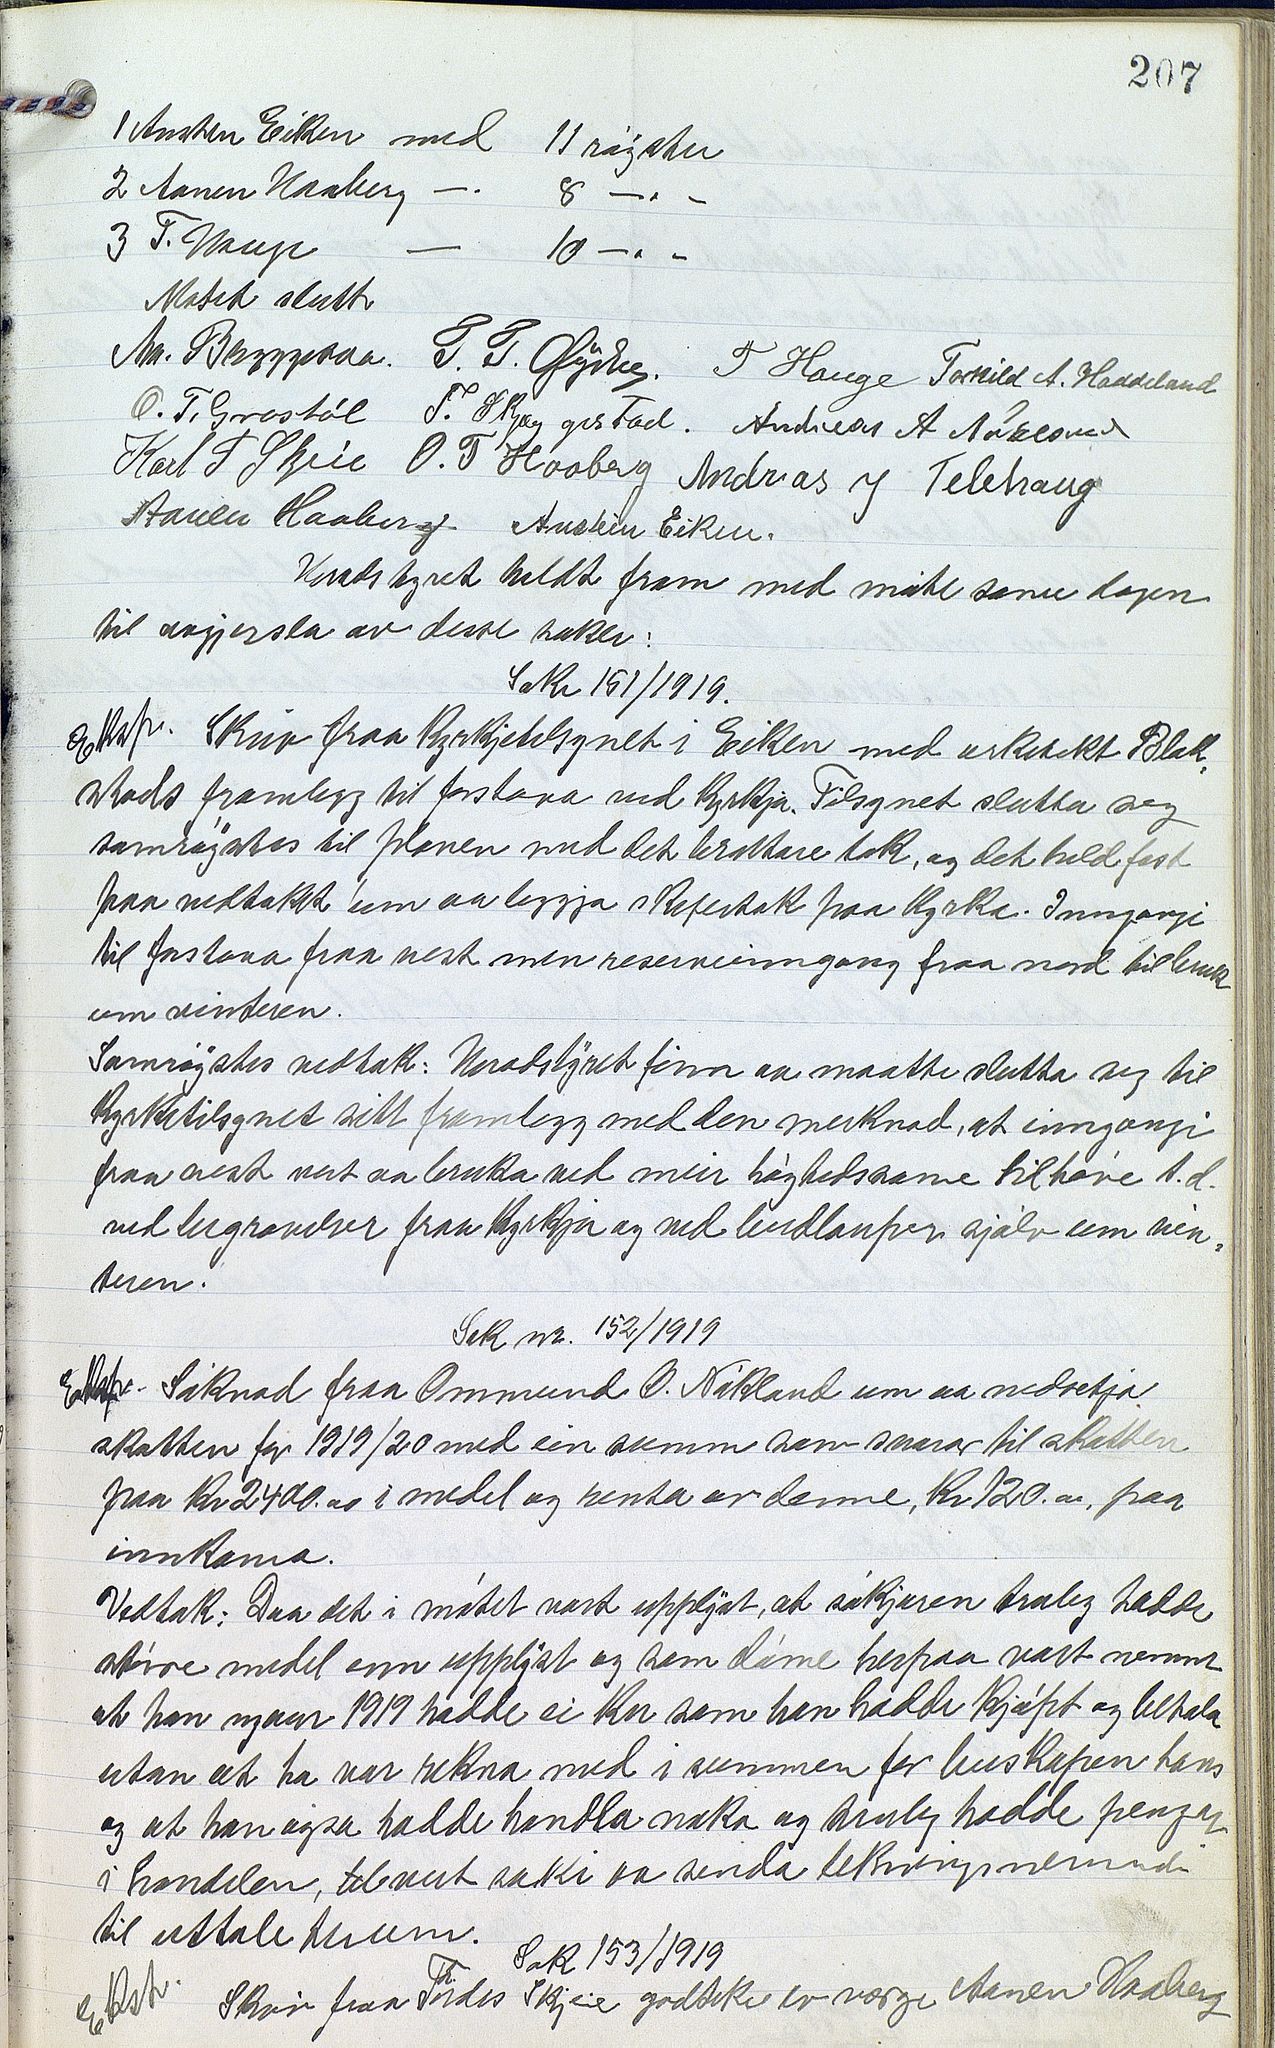 207
1 Austen Eiken med 11 røyster
2 Aanen Haaberg —. 8 —. -
3 T. Hauge — 10 —. -
Møtet slutt
Aa. Bryggesaa. T. T. Øydne. T Hauge Torkild A. Haddeland
O. T. Grostøl S. Skjeggestad. Andreas A Nøkland
Karl T Skeie O. T Haaberg Andrias J Telehaug
Aanen Haaberg Austen Eiken.
Heradstyret heldt fram med møte same dagen
til avgjersla av desse saker:
Sak 151/1919.
Ekspr. Skriv fraa kyrkjetilsynet i Eiken med arkitekt Blak-
stads framlegg til forstova ved kyrkja. Tilsynet slutta seg
samrøystes til planen med det brattare tak, og det held fast
paa vedtaket um aa leggja skifertak paa kyrka. Inngangi
til forstova fraa vest men reserveinngang fraa nord til bruk
um vinteren.
Samrøystes vedtak: Heradstyret finn aa maatte slutta seg til
kyrkjetilsynet sitt framlegg med den merknad, at inngangi
fraa vest vert aa bruka ved meir høghedsame tilhøve t.d.
ved begravelser fraa kyrkja og ved brudlauper sjølv um vin-
teren.
Sak nr. 152/1919
Ekspr. Søknad fraa Ommund O. Nøkland um aa nedsetja
skatten for 1919/20 med ein summ som svarar til skatten
paa kr 2400.00 i medel og renta av denne, kr 120.00, paa
innkoma.
Vedtak: Daa det i møtet vart upplyst, at søkjaren truleg hadde
større medel enn upplyst og som døme herpaa vart nemnt
at han nyaar 1919 hadde ei ku som han hadde kjøpt og betala
utan at ho var rekna med i summen for buskapen hans
og at han ogsa hadde handla noko og truleg hadde pengar
i handelen, vert saki aa senda likningsnemndi
til uttale herum.
Sak 153/1919
Ekspr. Skriv fraa Tordis Skjeie godteke av verge Aanen Haaberg